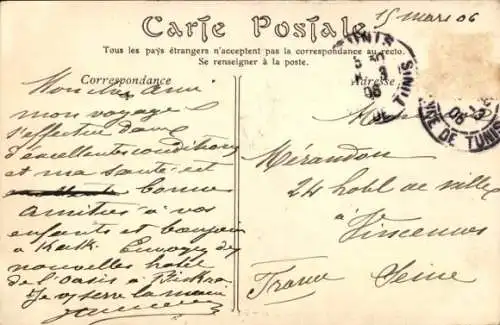 15 mars 06
Carte Postale
Tous les pays étrangers n'acceptent pas la correspondance au recto.
Se renseigner à la poste.
Correspondance
Adresse
Mon cher ami
mon voyage
s'effectue dans
d'excellentes conditions
et ma santé est
bonne
Amitiés à vos
enfants et bonjour
à Envoyez des
nouvelles hotel
de l'Oasis à Biskra
Je vs serre la main
Monsieur
Mérandon
24 hotel de ville
à Vincennes
France Seine
TUNIS
DE TUNIS
06
DE TUNIS